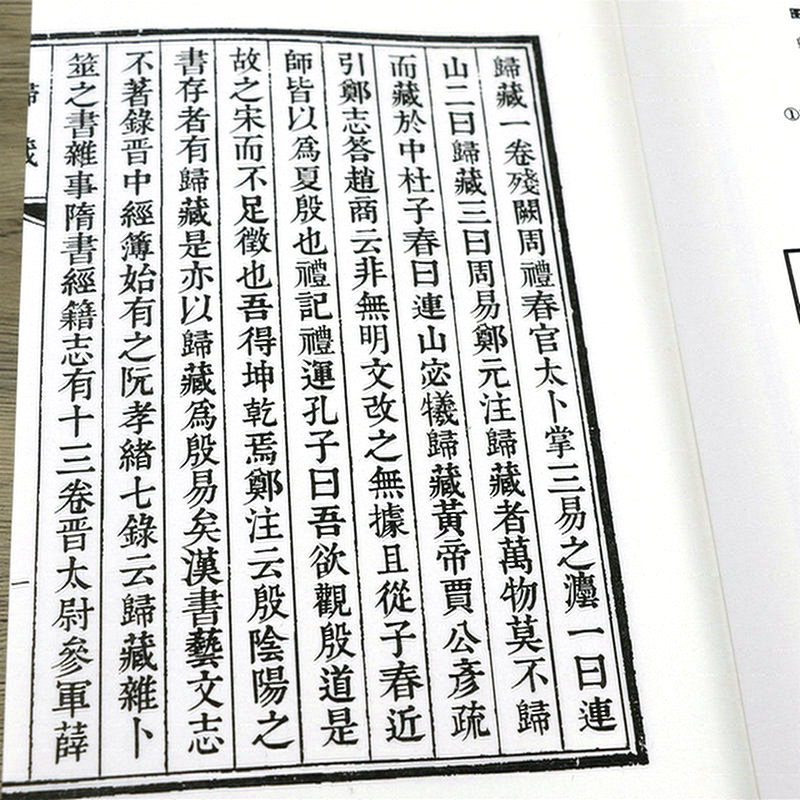 歸藏一卷殘闕周禮春官太卜掌三易之灋一曰連
山二曰歸藏三曰周易鄭元注歸藏者萬物莫不歸
而藏於中杜子春曰連山宓犧歸藏黃帝賈公彥疏
引鄭志答趙商云非無明文改之無據且從子春近
師皆以爲夏殷也禮記禮運孔子曰吾欲觀殷道是
故之宋而不足徵也吾得坤乾焉鄭注云殷陰陽之
書存者有歸藏是亦以歸藏爲殷易矣漢書藝文志
不著錄晉中經簿始有之阮孝緒七錄云歸藏雜卜
筮之書雜事隋書經籍志有十三卷晉太尉參軍薛
一
①